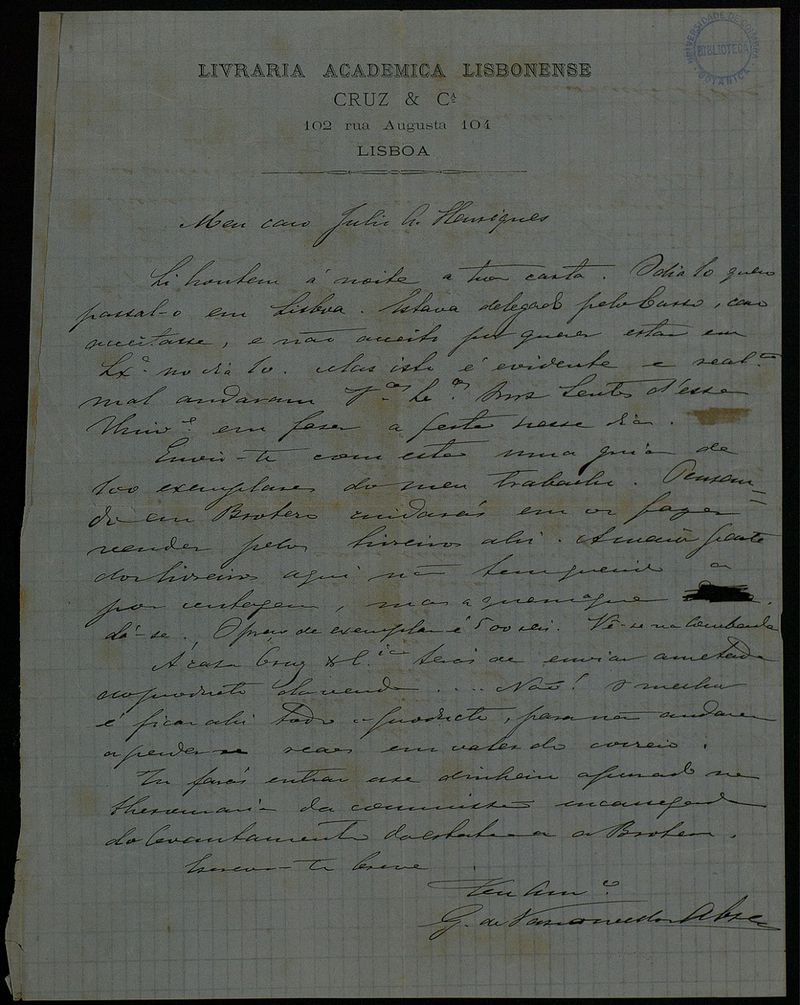 UNIVERSIDADE DE COIMBRA
BIBLIOTECA
BOTANICA
LIVRARIA ACADEMICA LISBONENSE
CRUZ & Cª
102 rua Augusta 104
LISBOA
Meu caro Julio A. Henriques
Li hontem á noite a tua carta. O dia 10 quero
passal-o em Lisboa. Estava delegado pelo, caso
acceitasse, e não acceito por querer estar em
Lxª no dia 10. Mas isto é evidente e real.te
mal andaram Lentes d'essa
Univ.e em fazer a festa nesse dia.
Envio-te com esta uma guia de
100 exemplares do meu trabalho. Pensan=
do em Brotero cuidarás em os fazer
vender pelos livreiros ahi. A maior parte
dos livreiros aqui não tem querido a
por centagem, mas a quem
dá-se. O preço de exemplar é 500 reis. Vê-se na lombada
Á casa Cruz & C.ia terás de enviar ametade
do producto da venda.... Não! O melhor
é ficar ahi todo o producto, para não andarem
a perder-se reaes em vales do correio.
Tu farás entrar esse dinheiro apurado na
thesouraria da commissão encarregada
do levantamento da estatua a Brotero.
Escreve-te breve
Teu Am.º
G. de Vasconcellos Abreu